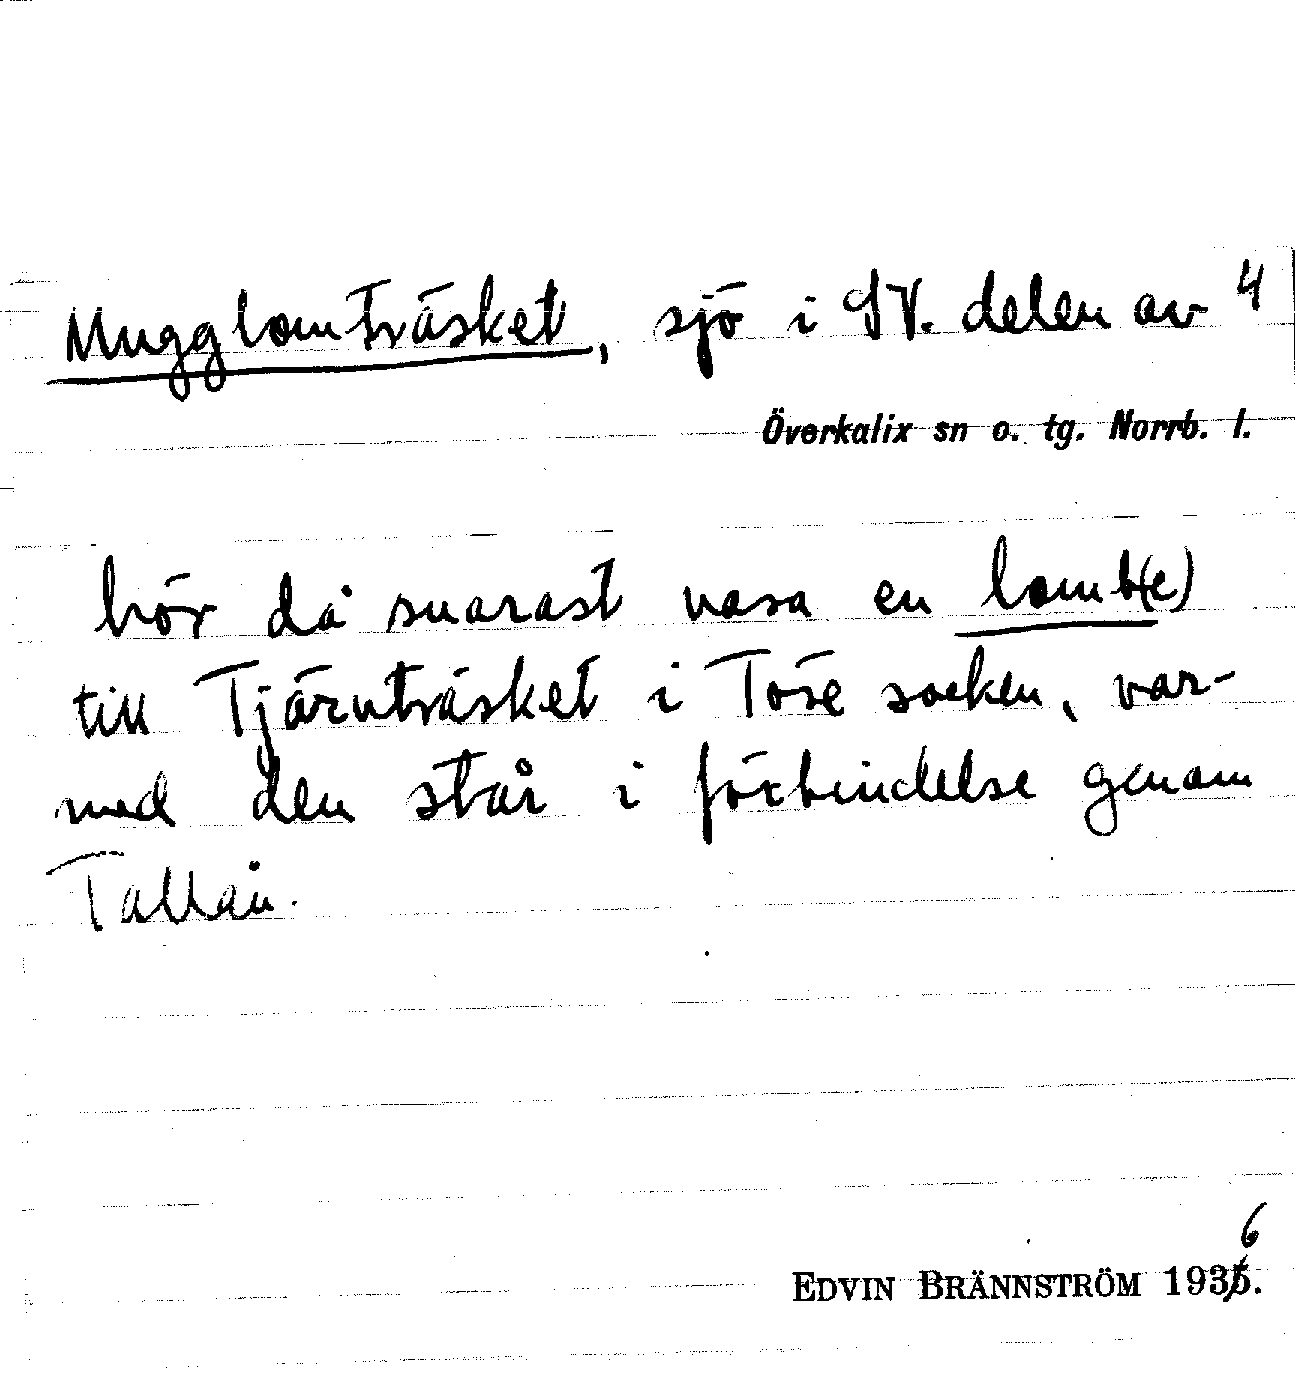 Mugglomträsket, sjö i SV. delen av 4
Överkalix sn o. tg. Norrb. l.
bör då snarast vara en lomb(e)
till Tjärnträsket i Töre socken, var-
med den står i förbindelse genom
Tallån.
6
EDVIN BRÄNNSTRÖM 1935.